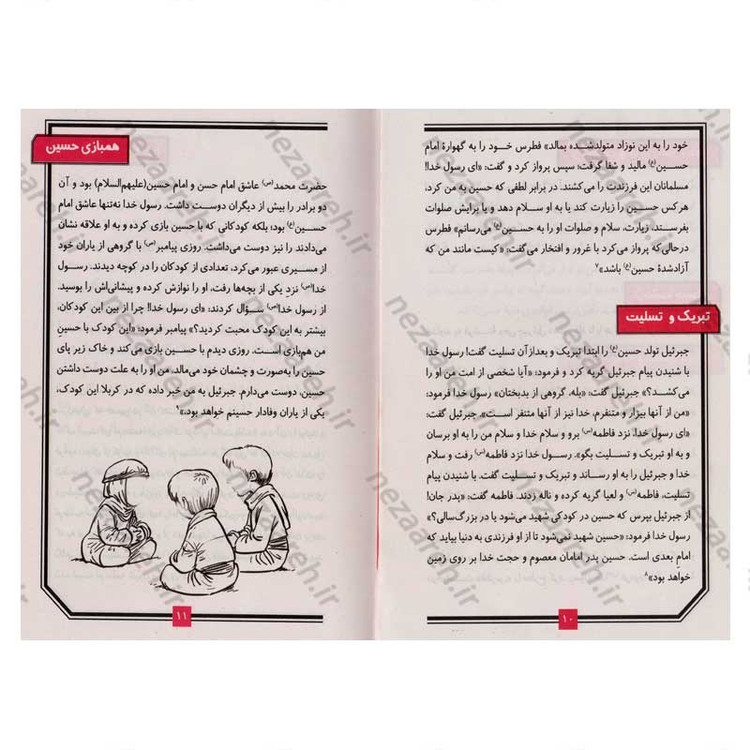 خود را به این نوزاد متولدشده بمالد» فطرس خود را به گهوارهٔ امام
حسین(ع) مالید و شفا گرفت؛ سپس پرواز کرد و گفت: «ای رسول خدا!
مسلمانان این فرزندت را می‌کشند. در برابر لطفی که حسین به من کرد،
هرکس حسین را زیارت کند یا به او سلام دهد و یا برایش صلوات
بفرستد، زیارت، سلام و صلوات او را به حسین(ع) می‌رسانم» فطرس
درحالی‌که پرواز می‌کرد با غرور و افتخار می‌گفت: «کیست مانند من که
آزادشدهٔ حسین(ع) باشد»۷
تبریک و تسلیت
جبرئیل تولد حسین(ع) را ابتدا تبریک و بعدازآن تسلیت گفت! رسول خدا
با شنیدن پیام جبرئیل گریه کرد و فرمود: «آیا شخصی از امت من او را
می‌کشد؟» جبرئیل گفت: «بله، گروهی از بدبختان» رسول خدا فرمود:
«من از آنها بیزار و متنفرم، خدا نیز از آنها متنفر است»، جبرئیل گفت:
«ای رسول خدا، نزد فاطمه(س) برو و سلام خدا و سلام من را به او برسان
و به او تبریک و تسلیت بگو». رسول خدا نزد فاطمه(س) رفت و سلام
خدا و جبرئیل را به او رساند و تبریک و تسلیت گفت. با شنیدن پیام
تسلیت، فاطمه(س) و لعیا گریه کرده و ناله زدند. فاطمه گفت: «پدر جان!
از جبرئیل بپرس که حسین در کودکی شهید می‌شود یا در بزرگ‌سالی؟»
رسول خدا فرمود: «حسین شهید نمی‌شود تا از او فرزندی به دنیا بیاید که
امام بعدی است. حسین پدر امامان معصوم و حجت خدا بر روی زمین
خواهد بود»۸
۱۰
همبازی حسین
حضرت محمد(ص) عاشق امام حسن و امام حسین(علیهم‌السلام) بود و آن
دو برادر را بیش از دیگران دوست داشت. رسول خدا نه‌تنها عاشق امام
حسین(ع) بود؛ بلکه کودکانی که با حسین بازی کرده و به او علاقه نشان
می‌دادند را نیز دوست می‌داشت. روزی پیامبر(ص) با گروهی از یاران خود
از مسیری عبور می‌کرد، تعدادی از کودکان را در کوچه دیدند. رسول
خدا(ص) نزد یکی از بچه‌ها رفت، او را نوازش کرده و پیشانی‌اش را بوسید.
از رسول خدا(ص) سؤال کردند: «ای رسول خدا! چرا از بین این کودکان،
بیشتر به این کودک محبت کردید؟» پیامبر فرمود: «این کودک با حسینِ
من هم‌بازی‌است. روزی دیدم با حسین بازی می‌کند و خاک زیر پای
حسین را به‌صورت و چشمان خود می‌مالد، من او را به علت دوست داشتن
حسین، دوست می‌دارم. جبرئیل به من خبر داده که در کربلا این کودک،
یکی از یاران وفادار حسینم خواهد بود.»۹
۱۱
nezaareh.ir